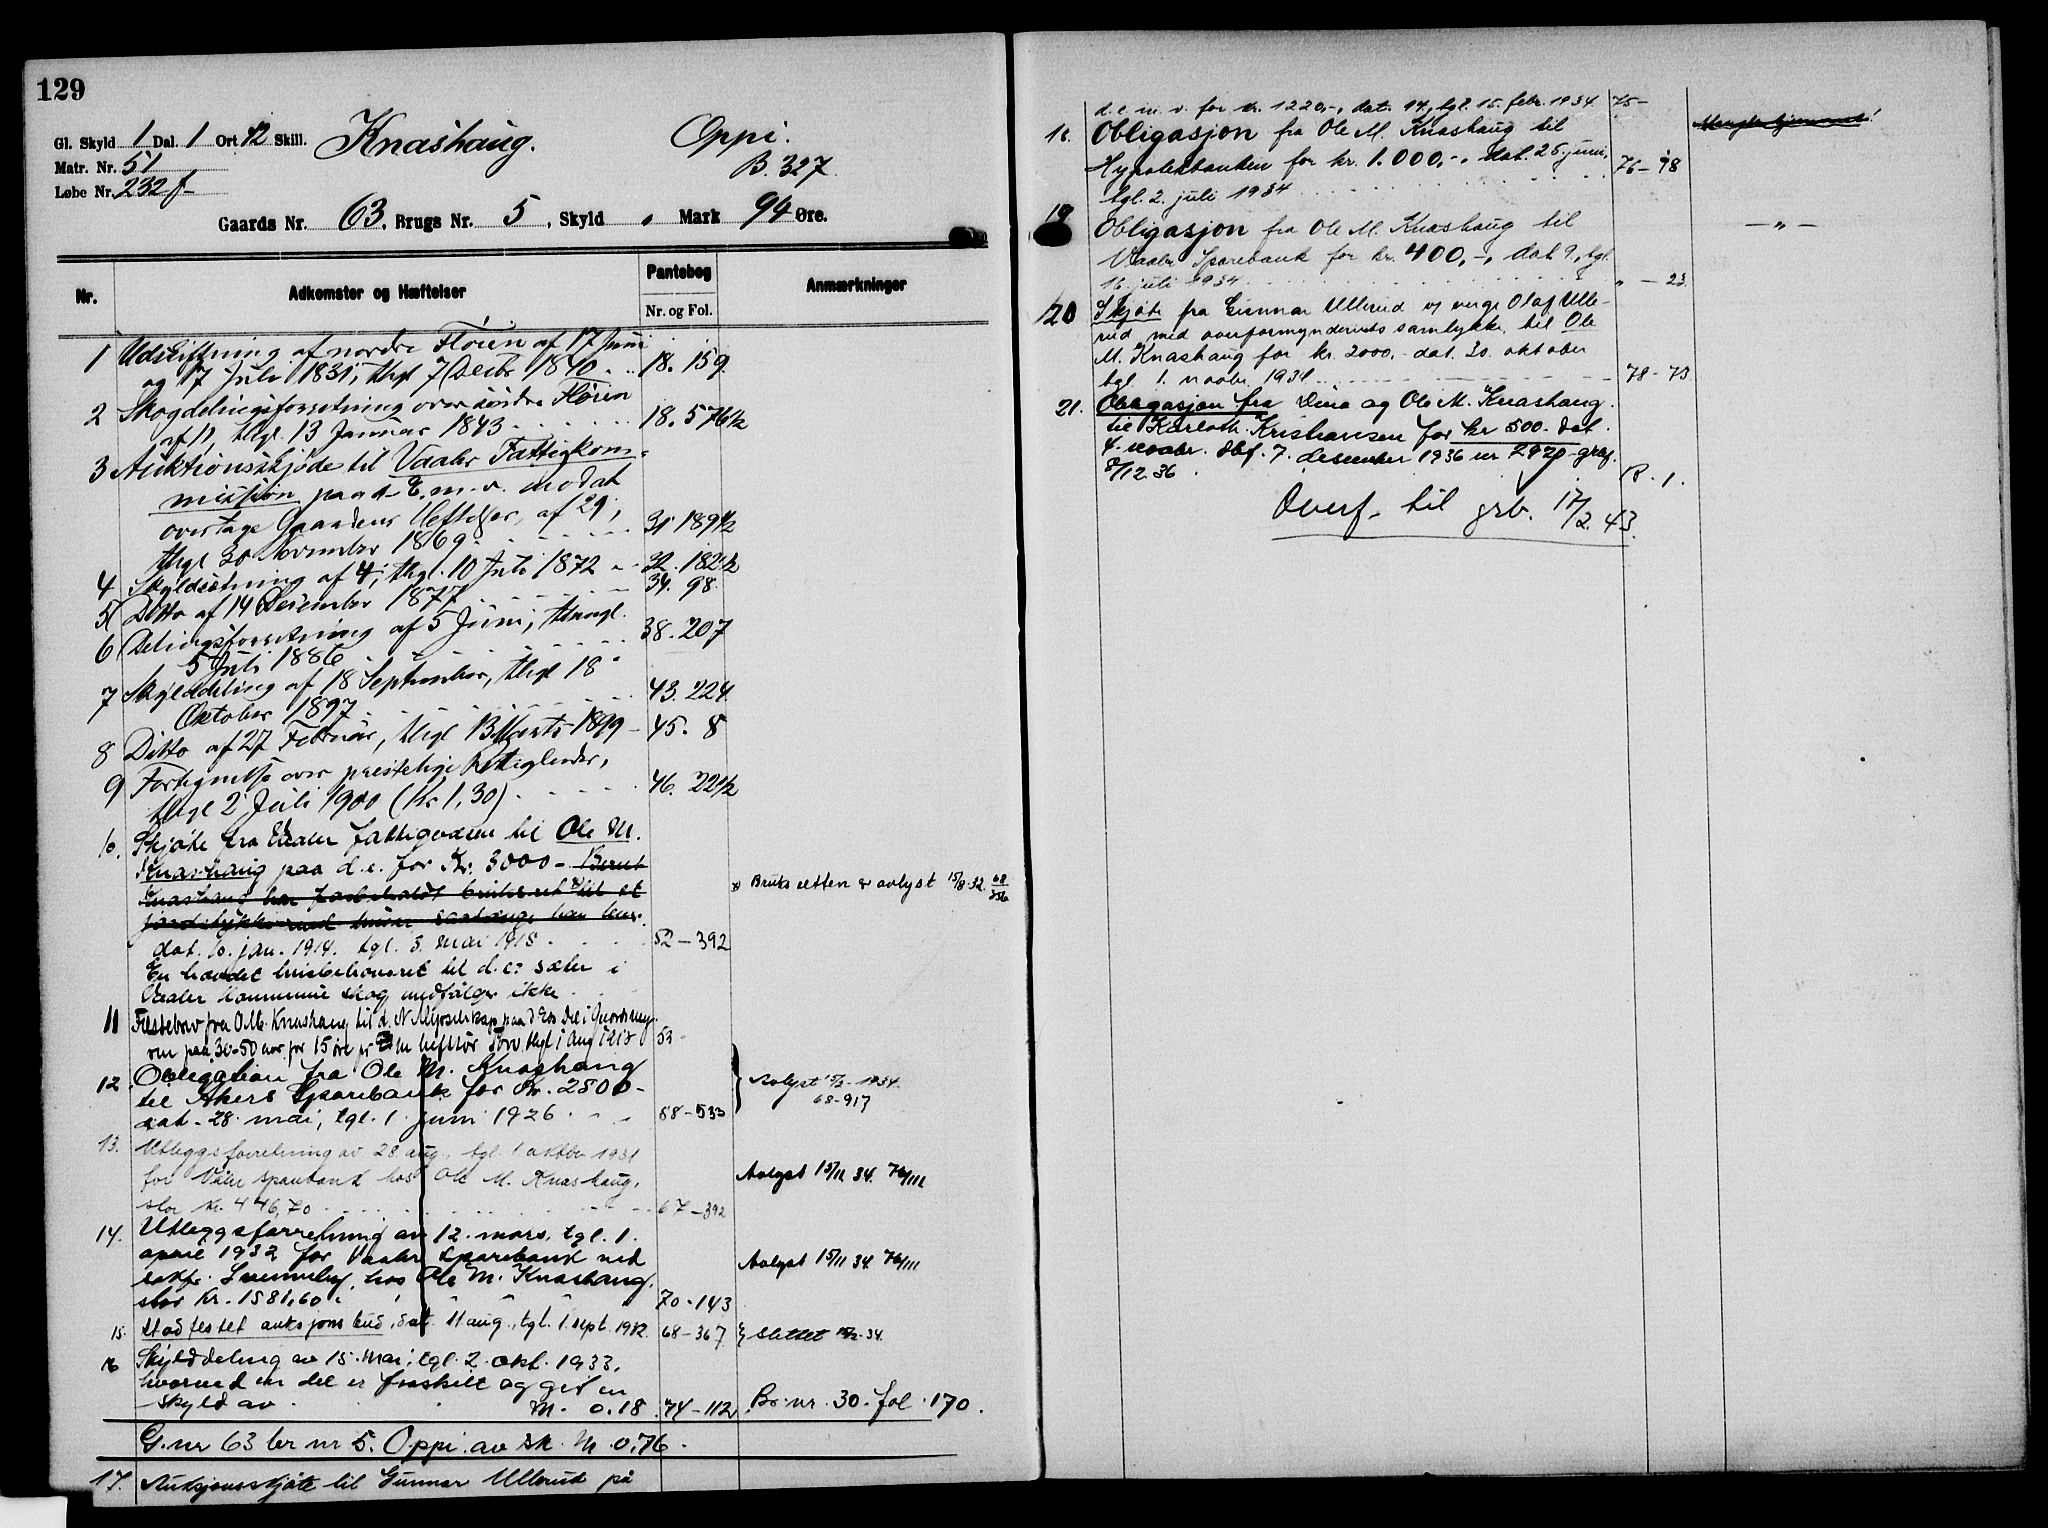 129
Gl. Skyld 1 Dal. 1 Ort 12 Skill. Knashaug. Oppi.
Matr. Nr. 51 B. 327
Løbe Nr. 232 f
Gaards Nr. 63, Brugs Nr. 5, Skyld , Mark 94 Øre.
Nr. Adkomster og Hæftelser Pantebog Nr. og Fol. Anmærkninger
1 Udskiftning af nordre Fløien af 17 Juni
og 7 Juli 1831, thgl 7 Decbr 1840 18. 159
2 Skogdelingsforretning over søndre Fløien
af 11, thgl. 13 Januar 1843 18. 576½
3 Auktionsskjøde til Vaaler Fattigkom-
mission paa d. E. m. v. modat
overtage Gaardens Heftelser, af 29,
thgl 30 November 1869 31 189½
4 Skyldsætning af 4, thgl. 10 Juli 1872 32. 182½
5 Ditto af 14 Desember 1877 34. 98.
6 Delingsforretning af 5 Juni, thingl.
5 Juli 1886 38. 207
7 Skylddeling af 18 September, thgl 18
Oktober 1897 43. 224
8 Ditto af 27 Februar, thgl 13 Marts 1899 45. 8
9 Fortegnelse over prestelige Rettigheder,
thgl 2 Juli 1900 (Kr 1,30) 46. 22½
10. Skjøte fra Vaaler fattigvæsen til Ole M.
Knashaug paa d. e. for Kr. 3000 - Bernt
Knashaug har forbeholdt bruksret til et
jordstykke ved husene saalænge han lever.
x Bruksretten er avlyst 15/8-32. 68/356
dat. 10. jan. 1914. tgl. 3. mai 1915 52-392
En hævdet bruksret til d.e.s sæter i
Vaaler kommune skog medfølger ikke
11 Festebrev fra O. M. Knashaug til d. N. Aljoselskap paa d Eos Del i Gnordsmyr
ren paa 30-50 aar for 15 øre pr 53
12. Obligation fra Ole M. Knashaug
til Akers Sparebank for Kr. 2800- Avlyst 15/2-1934.
dat. 28. mai, tgl. 1 juni 1926 58-533 68-917
13. Utleggsforretning av 28 aug, tgl. 1 oktbr 1931
for Våler sparebank hos Ole M. Knashaug, Avlyst 15/11 34. 76/111
stor kr. 446,70 67-392
14. Utleggsforretning av 12. mars, tgl. 1.
april 1932 for Vaaler Sparebank ved
sakf. Svenneby, hos Ole M. Knashaug, Avlyst 15/11 34 76/111
stor Kr. 1581,60 70-143
15. Stadfestet auksjonsbud, dat. 11 aug., tgl. 1. sept. 1932. 68-367 slettet 15/2-34.
16 Skylddeling av 15. mai, tgl. 2. okt. 1933,
hvorved en del er fraskilt og gitt en
skyld av M. 0.18 74-112 Br. nr. 30. fol. 170.
G. nr 63 br nr 5. Oppi. av sk. M 0,76.
17. Auksjonsskjøte til Gunnar Ullerud på
d. e. m. v. for kr. 1220,-, dat. 14, tgl. 15. febr. 1934 75-
18. Obligasjon fra Ole M. Knashaug til
Hypotekbanken for kr. 1.000,-, dat. 25. juni, 76-98
tgl. 2. juli 1934
19 Obligasjon fra Ole M. Knashaug til - " -
Vaaler Sparebank for kr. 400,-, dat 9., tgl.
16. juli 1934 " - 23
20 Skjøte fra Gunnar Ullerud v/ verge Olaf Ulle-
rud med overformynderiets samtykke, til Ole
M. Knashaug for kr. 2000.- dat. 30. oktober
tgl. 1. novbr. 1934 78-73
21. Obligasjon fra Dina og Ole M. Knashaug
til Karl Kristiansen for kr 500. dat.
4. novbr. dbf. 7. desember 1936 nr 2920
8/12.36 R. 1.
Overf. til grb. 17/2.43.